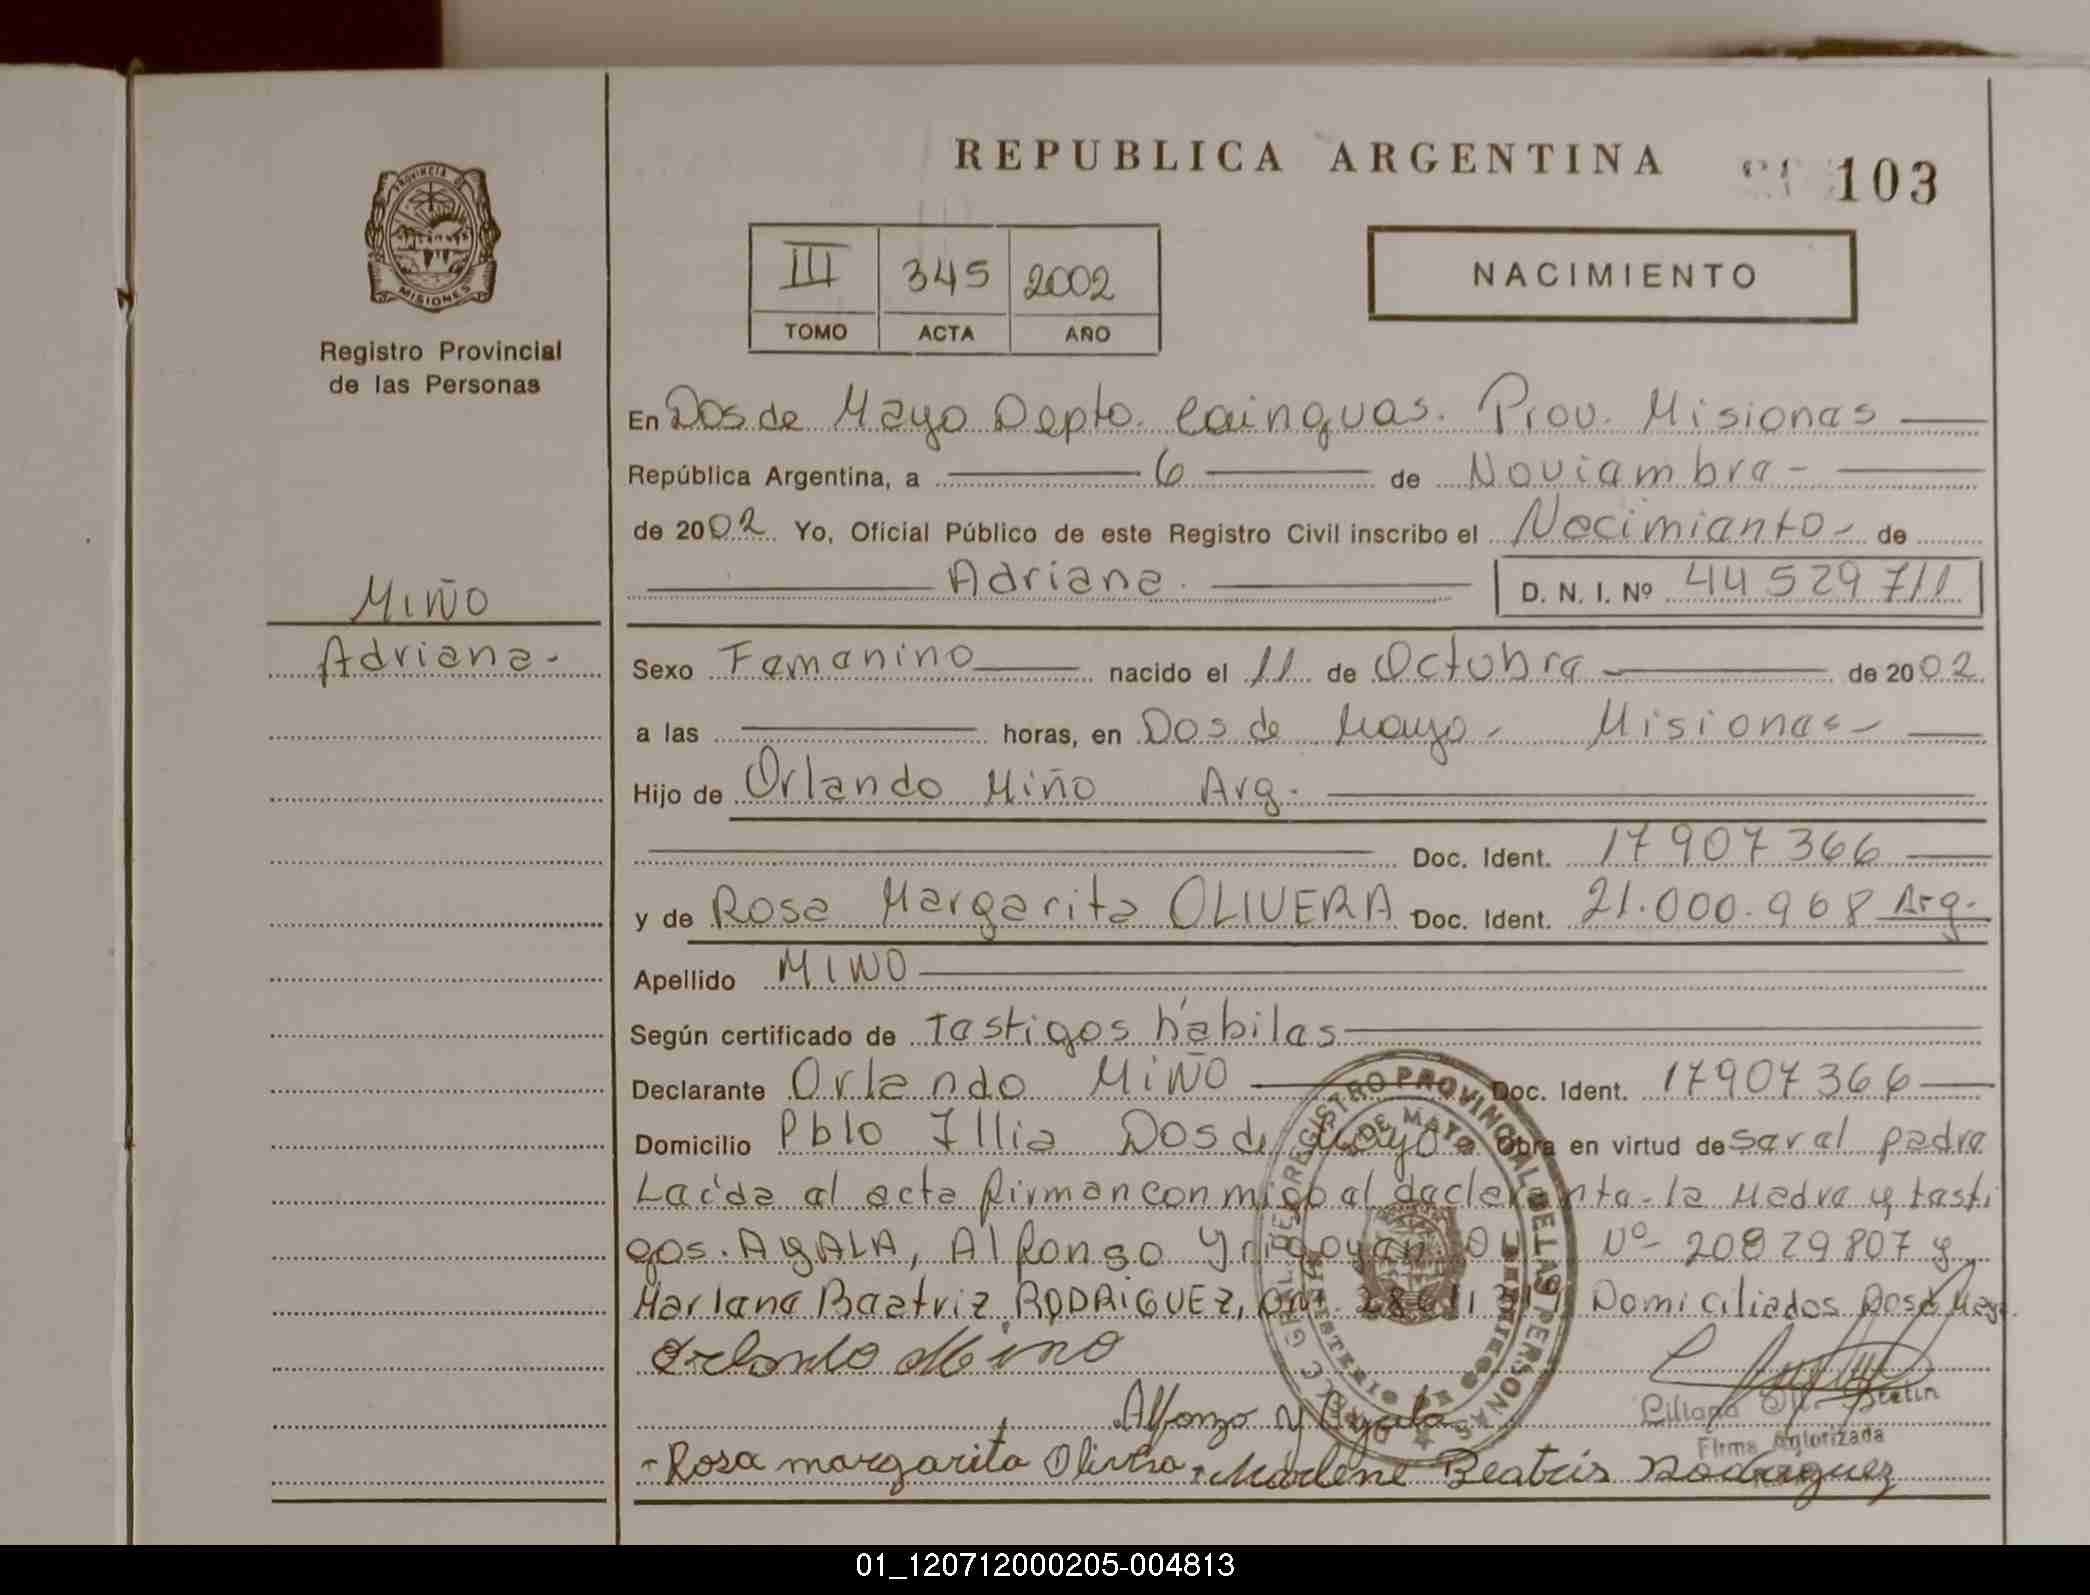 REPUBLICA ARGENTINA
103
PROVINCIA DE
MISIONES
Registro Provincial
de las Personas
III 345 2002
TOMO ACTA AÑO
NACIMIENTO
En Dos de Mayo Depto. Cainguas. Prov. Misiones
República Argentina, a 6 de Noviembre -
de 2002 Yo, Oficial Público de este Registro Civil inscribo el Nacimiento - de
Adriana. D. N. I. Nº 44 529 711
MIÑO
Adriana -
Sexo Femenino nacido el 11 de Octubre de 2002
a las horas, en Dos de Mayo - Misiones -
Hijo de Orlando Miño Arg.
Doc. Ident. 17907366
y de Rosa Margarita OLIVERA Doc. Ident. 21.000.968 Arg.
Apellido MIÑO
Según certificado de testigos hábiles
Declarante Orlando MIÑO Doc. Ident. 17907366
Domicilio Pblo Illia Dos de Mayo Obra en virtud de ser el padre
Leída el acta firman conmigo el declarante - la Madre y testi
gos. AYALA, Alfonso Yrigoyen Nº 20829807 y
Marlene Beatriz RODRIGUEZ, Domiciliados Dos de Mayo.
Orlando Miño
Alfonzo Y Ayala
Firma Autorizada
- Rosa margarita Olivera, Marlene Beatris Rodriguez
REGISTRO PROVINCIAL DE LAS PERSONAS
2 DE MAYO
MINISTERIO DE GOBIERNO
01_120712000205-004813